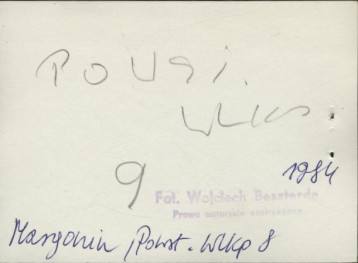 POWSI.
WLKP.
9
1984
Fot. Wojciech Beszterda
Prawa autorskie zastrzeżone
Margonin, Powst. Wlkp 8